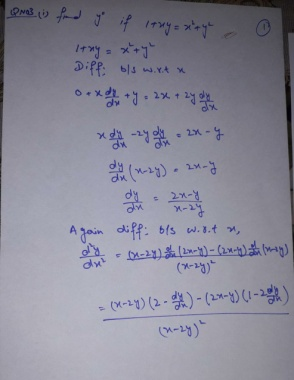 QNO3 (i) find y" if 1+xy = x²+y² (1)
1+xy = x²+y²
Diff: b/s w.r.t x
0 + x dy/dx + y = 2x + 2y dy/dx
x dy/dx - 2y dy/dx = 2x - y
dy/dx (x-2y) = 2x-y
dy/dx = 2x-y / x-2y
Again diff: b/s w.r.t x,
d²y/dx² = (x-2y) d/dx (2x-y) - (2x-y) d/dx (x-2y) / (x-2y)²
= (x-2y) (2 - dy/dx) - (2x-y) (1 - 2 dy/dx) / (x-2y)²